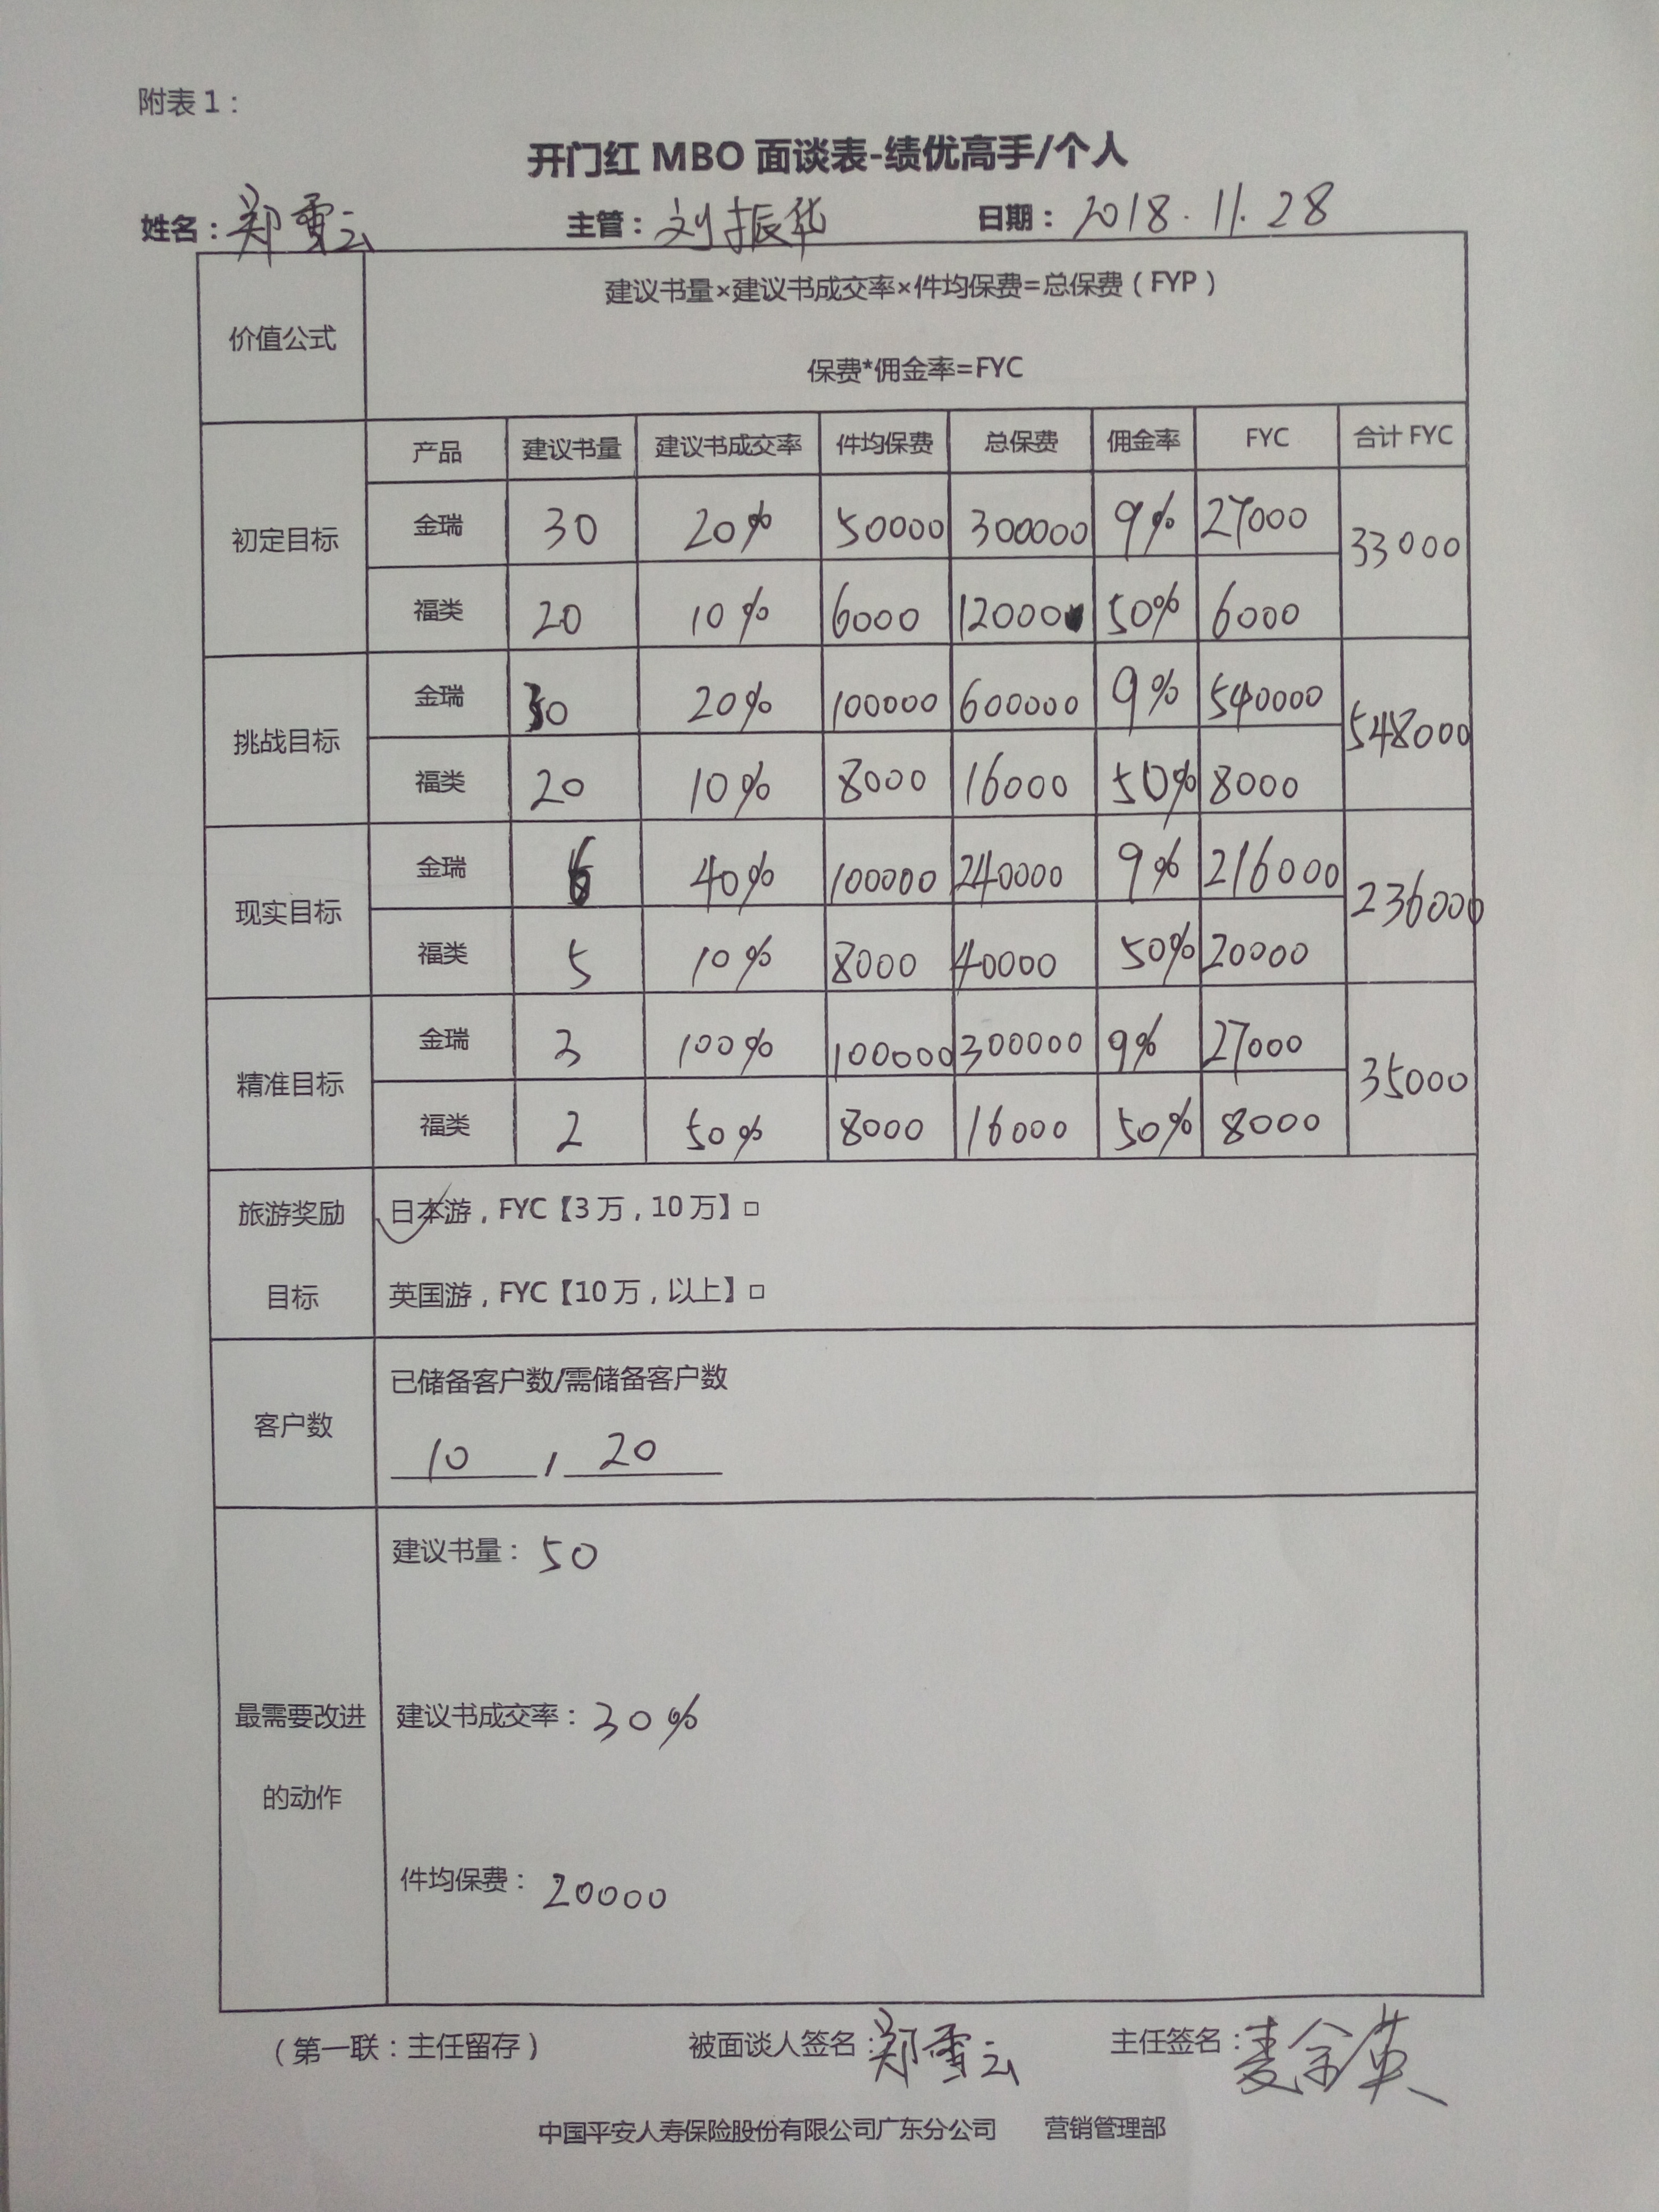 附表1：
开门红 MBO 面谈表-绩优高手/个人
姓名：郑雪云 主管：刘振华 日期：2018.11.28
价值公式
建议书量×建议书成交率×件均保费=总保费（FYP）
保费*佣金率=FYC
产品 建议书量 建议书成交率 件均保费 总保费 佣金率 FYC 合计 FYC
初定目标
金瑞 30 20% 50000 300000 9% 27000 33000
福类 20 10% 6000 12000 50% 6000
挑战目标
金瑞 30 20% 100000 600000 9% 540000 548000
福类 20 10% 8000 16000 50% 8000
现实目标
金瑞 6 40% 100000 240000 9% 216000 236000
福类 5 10% 8000 40000 50% 20000
精准目标
金瑞 3 100% 100000 300000 9% 27000 35000
福类 2 50% 8000 16000 50% 8000
旅游奖励
目标
日本游，FYC【3万，10万】□
英国游，FYC【10万，以上】□
客户数
已储备客户数/需储备客户数
10 , 20
最需要改进
的动作
建议书量：50
建议书成交率：30%
件均保费：20000
（第一联：主任留存） 被面谈人签名：郑雪云 主任签名：麦金英
中国平安人寿保险股份有限公司广东分公司 营销管理部